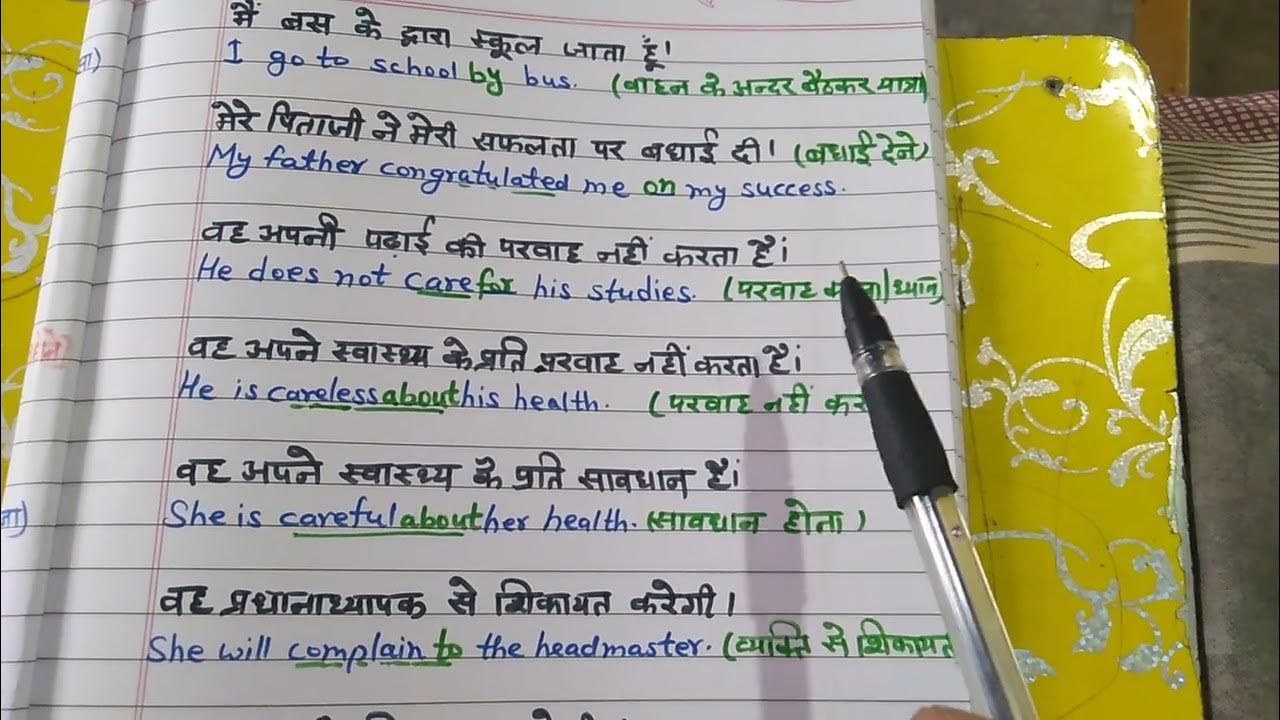 मैं बस के द्वारा स्कूल जाता हूँ।
I go to school by bus. (वाहन के अन्दर बैठकर यात्रा)
मेरे पिताजी ने मेरी सफलता पर बधाई दी। (बधाई देने)
My father congratulated me on my success.
वह अपनी पढ़ाई की परवाह नहीं करता है।
He does not care for his studies. (परवाह /ध्यान)
वह अपने स्वास्थ्य के प्रति परवाह नहीं करता है।
He is careless about his health. (परवाह नहीं कर
वह अपने स्वास्थ्य के प्रति सावधान है।
She is careful about her health. (सावधान होता)
वह प्रधानाध्यापक से शिकायत करेगी।
She will complain to the headmaster. (व्यक्ति से शिकायत